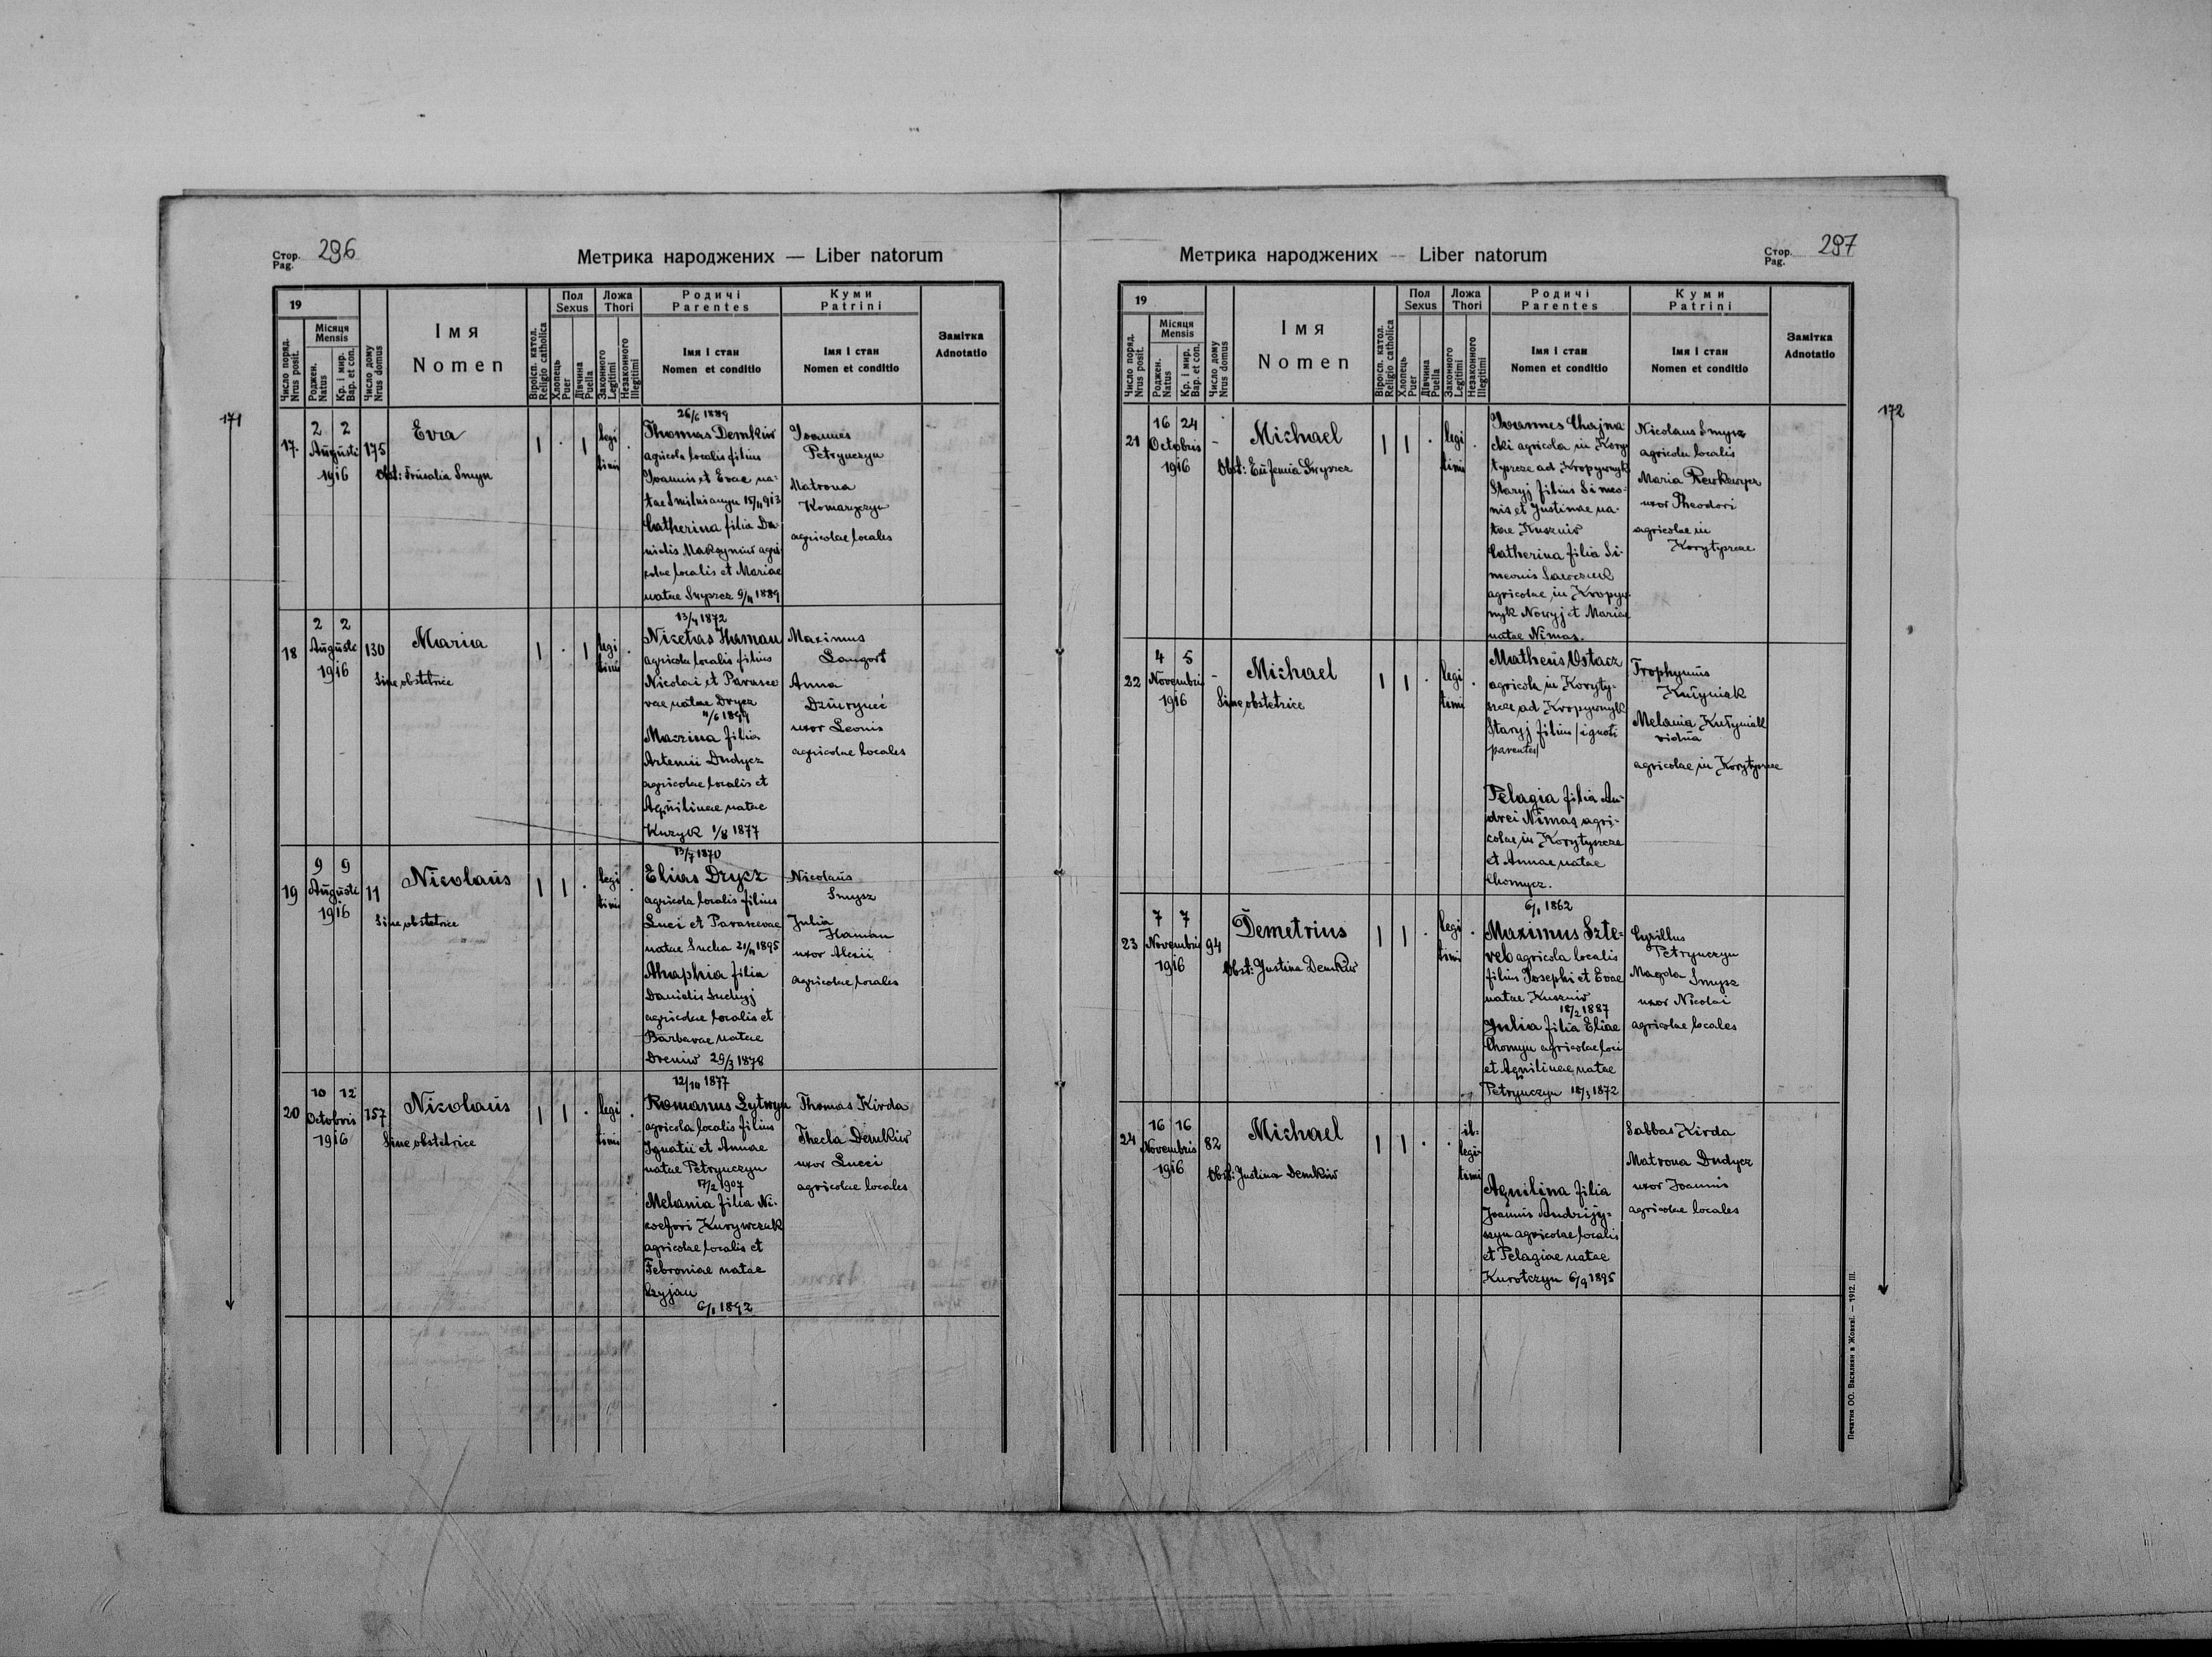 Стор. Pag. 296
Метрика народжених — Liber natorum
19
Число поряд. Nrus posit.
Місяця Mensis
Роджен. Natus
Кр. і мир. Bap. et con.
Число дому Nrus domus
Імя
Nomen
Віроісп. катол. Religio catholica
Пол Sexus
Хлопець Puer
Дівчина Puella
Ложа Thori
Законного Legitimi
Незаконного Illegitimi
Родичі Parentes
Імя і стан
Nomen et conditio
Куми Patrini
Імя і стан
Nomen et conditio
Замітка
Adnotatio
171
17.
2 2
Augusti
1916
175
Eva
Smyn
legi
timi
26/6 1889
Thomas Demkiw
agricola localis filius
Ioannis et Evae na-
tae
Catherina filia Da-
nielis Maksymiw agri
colae localis et Mariae
natae 9/11 1889
Ioannes
Petrynczyn
Matrona
Komarzczyn
agricolae locales
18
2 2
Auguste
1916
130
Maria
Sine obstetrice
legi
timi
13/4 1872
Nicetas Haman
agricola localis filius
Nicolai et Parasce
vae natae Drycz
11/6 1899
Macrina filia
Artemii Dudycz
agricolae localis et
Aquilinae natae
Kuzyk 1/8 1877
Maximus
Langort
Anna
uxor Leonis
agricolae locales
19
9 9
Auguste
1916
11
Nicolaus
Sine obstetrice
legi
timi
13/7 1870
Elias Drycz
agricola localis filius
Luci et Parascevae
natae Sucha 21/11 1895
filia
Danielis Suchyj
agricolae localis et
Barbarae natae
Dreniw 29/3 1878
Nicolaus
Smysz
Julia
Haman
uxor Alexii
agricolae locales
20
10 12
Octobris
1916
157
Nicolaus
Sine obstetrice
legi
timi
12/10 1877
Romanus Lytwyn
agricola localis filius
Ignatii et Annae
natae Petrynczyn
17/2 1907
Melania filia Ni-
cefori Kurywczak
agricolae localis et
Febroniae natae
6/1 1892
Thomas Kirda
Thecla Demkiw
uxor Lucci
agricolae locales
Метрика народжених — Liber natorum
Стор. Pag. 297
19
Число поряд. Nrus posit.
Місяця Mensis
Роджен. Natus
Кр. і мир. Bap. et con.
Число дому Nrus domus
Імя
Nomen
Віроісп. катол. Religio catholica
Пол Sexus
Хлопець Puer
Дівчина Puella
Ложа Thori
Законного Legitimi
Незаконного Illegitimi
Родичі Parentes
Імя і стан
Nomen et conditio
Куми Patrini
Імя і стан
Nomen et conditio
Замітка
Adnotatio
172
21
16 24
Octobris
1916
-
Michael
Obst: Eufemia
legi
timi
Ioannes Chajna
cki agricola in Kory
tyszcze ad Kropywnyk
Staryj filius Simeo-
nis et Justinae na-
tae Kuszniw
Catherina filia Si-
meonis Sawczuk
agricolae in Kropyw
nyk Nowyj et Mariae
natae Nimas.
Nicolaus Smysz
agricola localis
Maria
uxor Theodori
agricolae in
Korytyszcze
22
4 5
Novembris
1916
-
Michael
Sine obstetrice
legi
timi
Matheus Ostacz
agricola in Koryty-
szcze ad Kropywnyk
Staryj filius /ignoti
parentes/
Pelagia filia An-
drei Nimas agri-
colae in Korytyszcze
et Annae natae
Chomycz.
Trophymus
Kutyniak
Melania Kutyniak
vidua
agricolae in Korytyszcze
23
7 7
Novembris
1916
94
Demetrius
Obst: Justina Demkiw
legi
timi
6/1 1862
Maximus Szte-
reb agricola localis
filius Josephi et Evae
natae Kuszniw
18/2 1887
Julia filia Eliae
Chomyn agricolae loci
et Aquilinae natae
Petrynczyn 18/3 1872
Cyrillus
Petrynczyn
Magda Smysz
uxor Nicolai
agricolae locales
24
16 16
Novembris
1916
82
Michael
Obst: Justina Demkiw
il-
legi-
timi
Aquilina filia
Joannis Andrijy-
szyn agricolae localis
et Pelagiae natae
Kurotczyn 6/9 1895
Sabbas Kirda
Matrona Dudycz
uxor Joannis
agricolae locales
Печатня ОО. Василиян в Жовкві. — 1912. III.